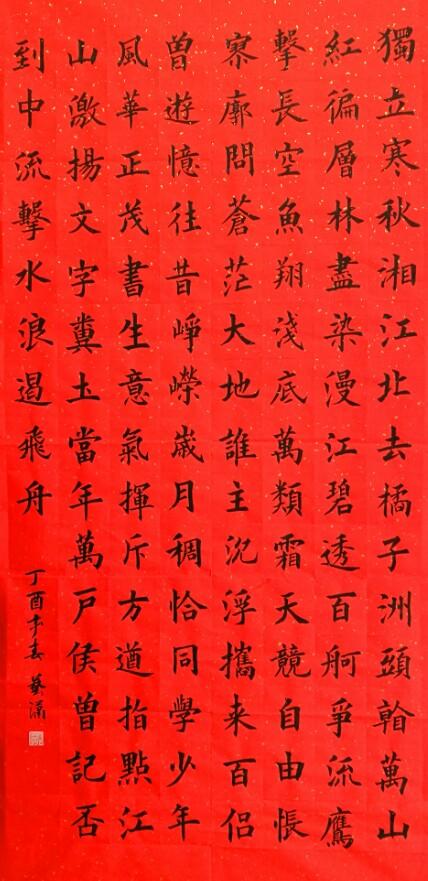 獨立寒秋湘江北去橘子洲頭看萬山
紅徧層林盡染漫江碧透百舸爭流鷹
擊長空魚翔淺底萬類霜天競自由悵
寥廓問蒼茫大地誰主沉浮攜来百侶
曾遊憶往昔崢嶸歲月稠恰同學少年
風華正茂書生意氣揮斥方遒指點江
山激揚文字糞土當年萬戶侯曾記否
到中流擊水浪遏飛舟
丁酉春